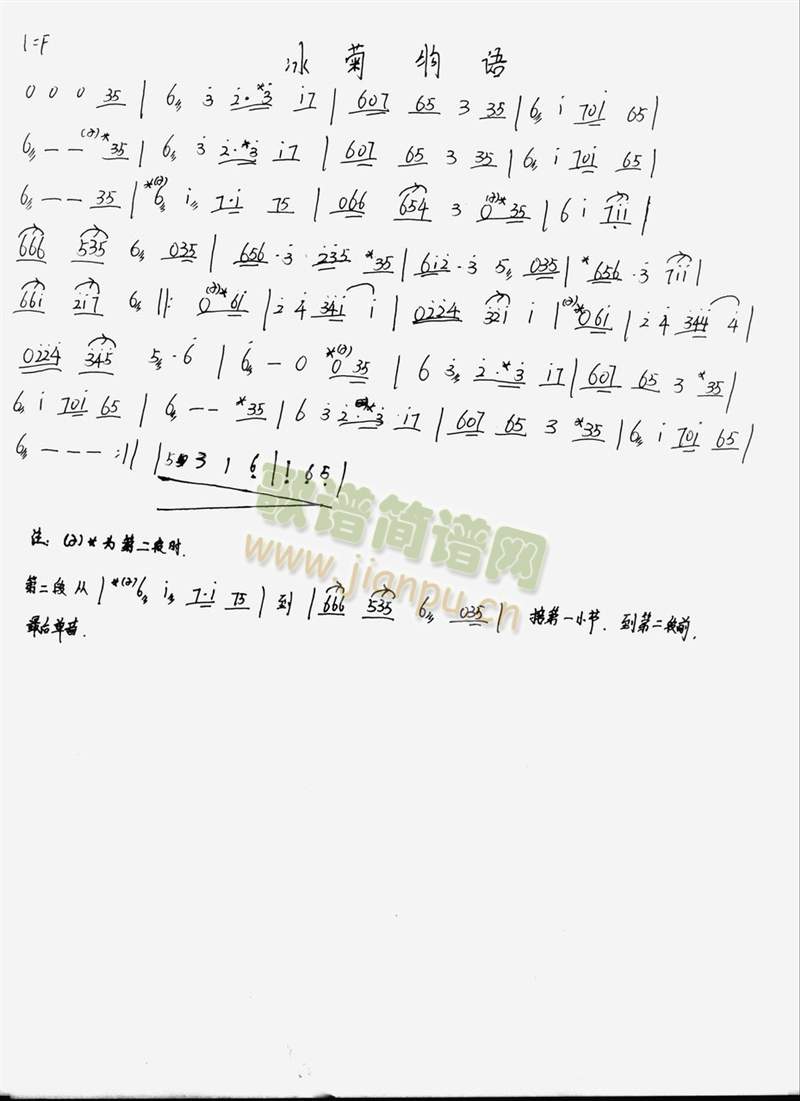 1=F
冰菊物语
0 0 0 35 | 6 3̇ 2̇·*3̇ i7 | 607 65 3 35 | 6 i 70i 65 |
6 – – (2)*35 | 6 3̇ 2̇·*3̇ i7 | 607 65 3 35 | 6 i 70i 65 |
6 – – 35 | *(2)6 i 7·i 75 | 066 654 3 (2)*035 | 6 i 7ii |
666 535 6 035 | 656·3̇ 2̇3̇5̇ *35 | 6i2̇·3̇ 5 035 | *656·3̇ 7ii |
66i 2̇i7 6 ‖: (2)*06i | 2̇ 4̇ 3̇4̇i i | 02̇2̇4̇ 3̇2̇i i | (2)*06i | 2̇ 4̇ 3̇4̇4̇ 4̇ |
02̇2̇4̇ 3̇4̇5̇ 5·6̇ | 6̇ – 0 *(2)035 | 6 3̇ 2̇·*3̇ i7 | 607 65 3 *35 |
6 i 70i 65 | 6 – – *35 | 6 3̇ 2̇·*3̇ i7 | 607 65 3 *35 | 6 i 70i 65 |
6 – – – :‖ | 5 3 1 6̣ | 1̣ 6̣ 5̣ |
歌谱简谱网
www.jianpu.cn
注: (2)*为第二段时.
第二段从 | *(2)6 i 7·i 75 | 到 | 666 535 6 035 | 接第一小节. 到第二段前.
最后单音.